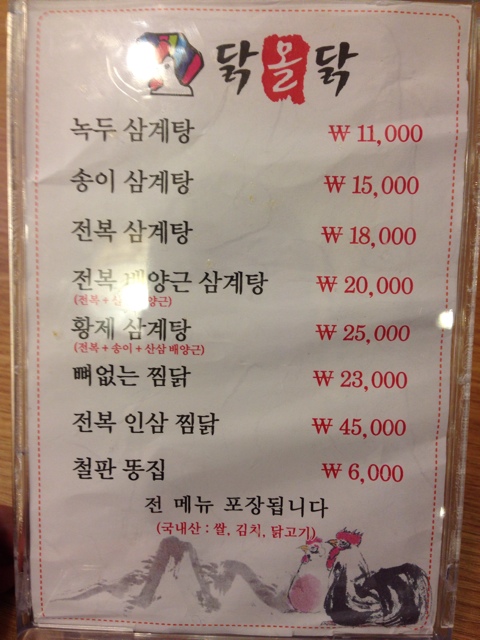 닭몰닭
녹두 삼계탕 ₩ 11,000
송이 삼계탕 ₩ 15,000
전복 삼계탕 ₩ 18,000
전복 배양근 삼계탕 ₩ 20,000
(전복 + 산삼 배양근)
황제 삼계탕 ₩ 25,000
(전복 + 송이 + 산삼 배양근)
뼈없는 찜닭 ₩ 23,000
전복 인삼 찜닭 ₩ 45,000
철판 똥집 ₩ 6,000
전 메뉴 포장됩니다
(국내산 : 쌀, 김치, 닭고기)